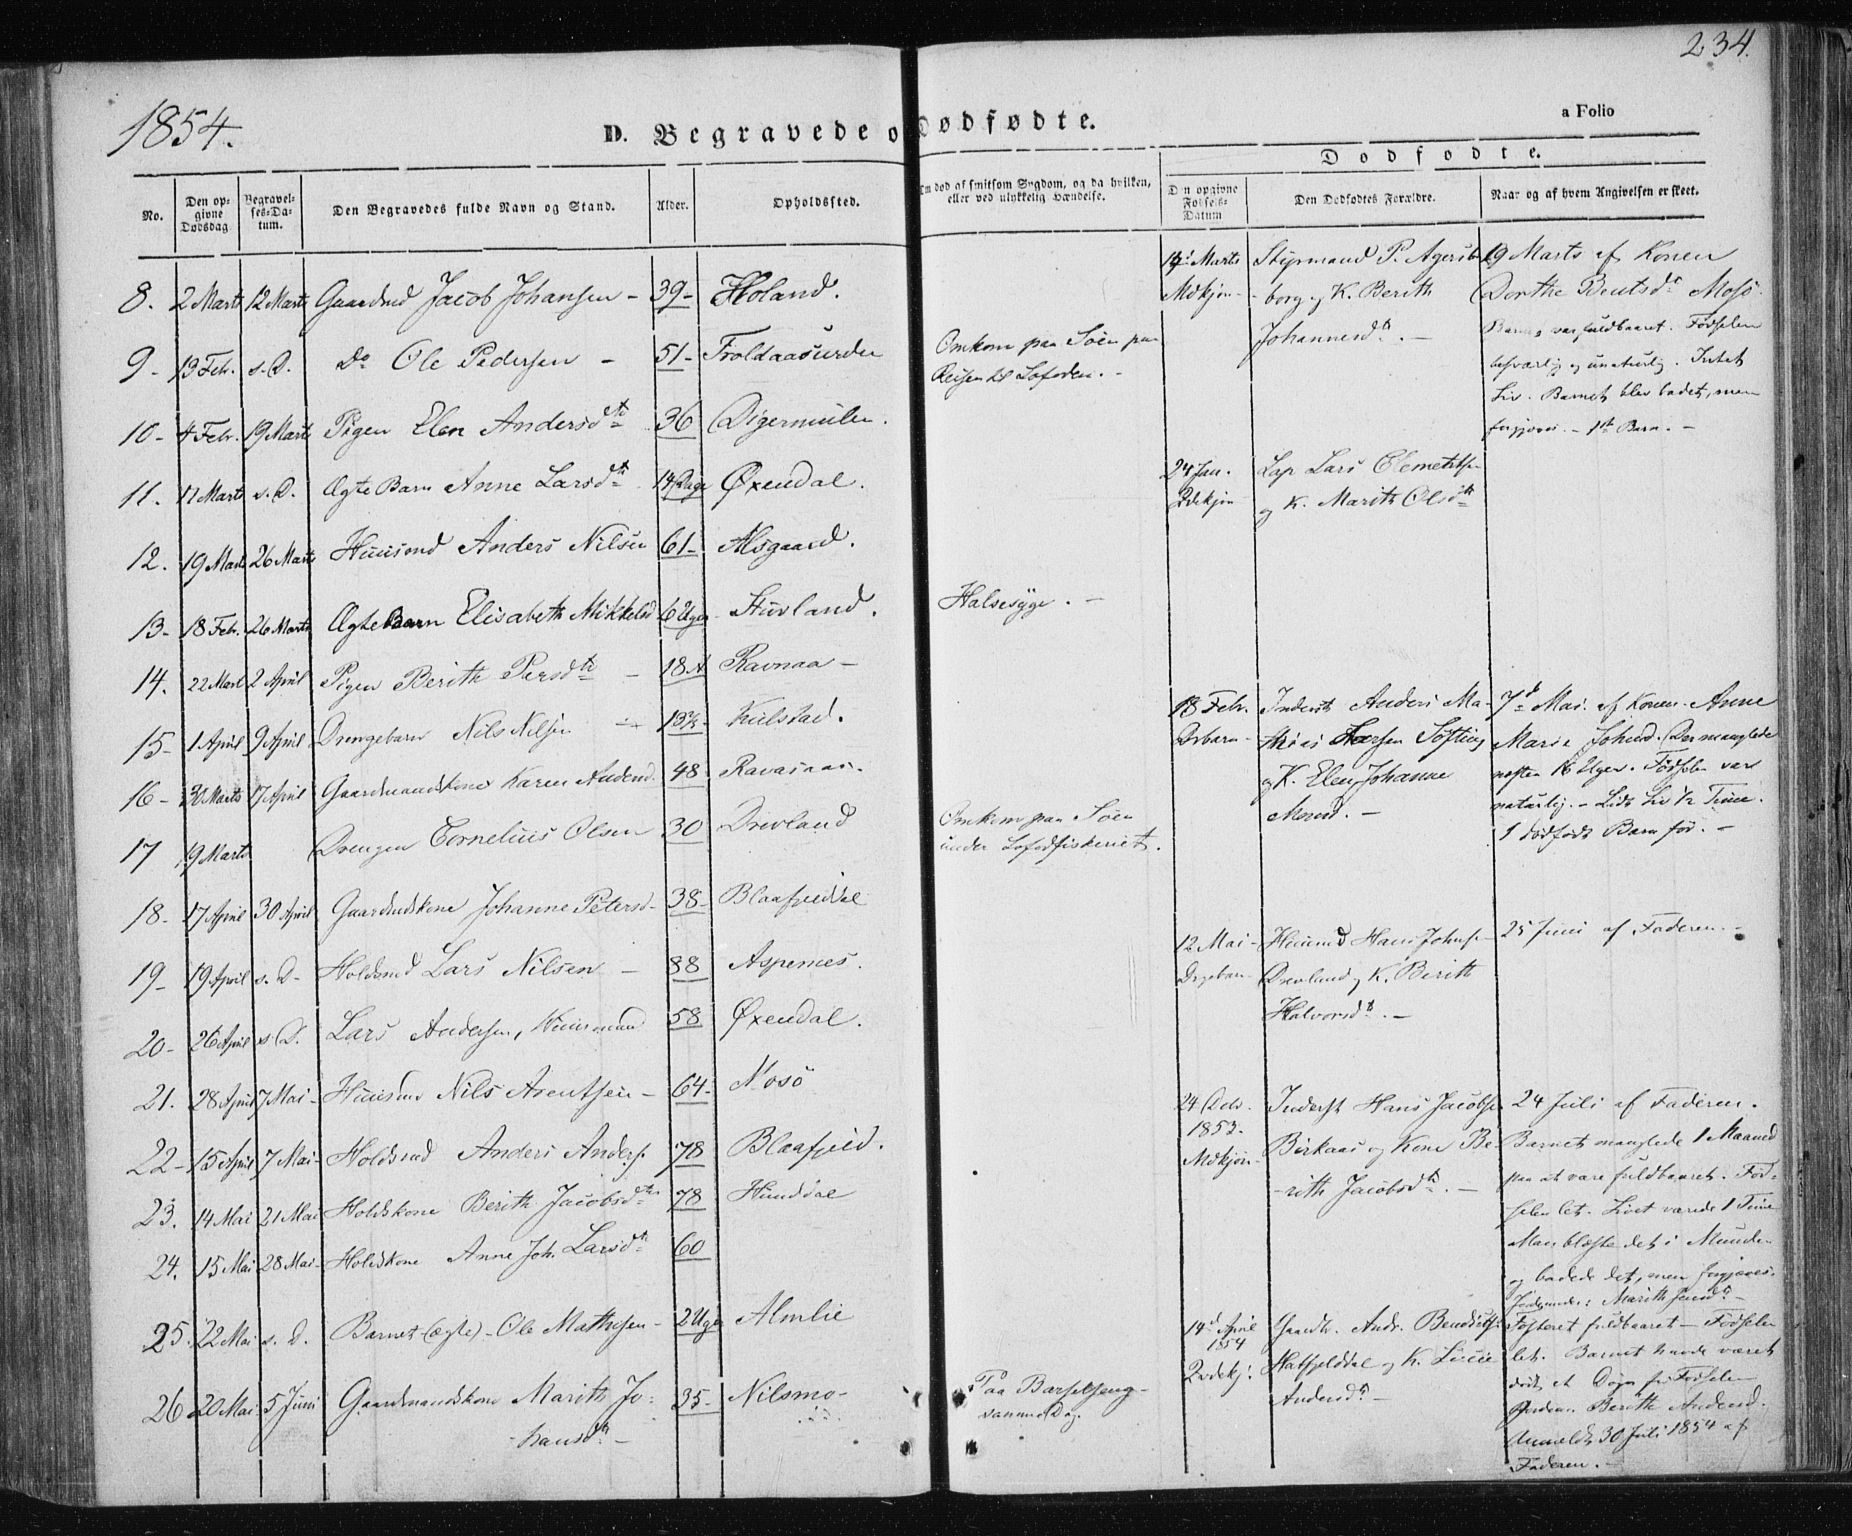 234.
1854.
D. Begravede o Dødfødte.
a Folio
Dødfødte.
No.
Den op-
givne
Dødsdag
Begravel-
ses-Da-
tum.
Den Begravedes fulde Navn og Stand.
Alder.
Opholdssted.
død af smitsom Sygdom, og da hvilken,
eller ved ulykkelig Hændelse.
opgivne
Fødsels-
Datum
Den Dødfødtes Forældre.
Naar og af hvem Angivelsen er skeet.
8. 2 Marts 12 Marts Gaardmd Jacob Johansen - 39- Holand.
9- 13 Febr. s. D. Do Ole Pedersen - 51- Troldaasurden
Omkom paa Söen paa
Reisen til Lofoden. -
10- 4 Febr. 19 Marts Pigen Elen Andersdtr 36 Digermulen.
11. 17 Marts s. D. Ægte Barn Anne Larsdtr 14 Dage Øxendal.
12. 19 Marts 26 Marts Huusmd Anders Nilsen 61- Alsgaard.
13- 18 Febr. 26 Marts Ægte Barn Elisabeth Mikkelsd 6 Uger Stuvland.
Halsesyge. -
14. 22 Marts 2 April Pigen Berith Persdtr - 18 A Ravnaa -
15- 1 April 9 April Drengebarn Nils Nilsen 13 Kulstad.
16- 30 Marts 17 April Gaardmandskone Karen Andersd. 48
17 19 Marts Drengen Cornelius Olsen 30 Drevland
Omkom paa Söen
under Lofodfiskeriet.
18- 17 April 30 April Gaardmdskone Johanne Petersd- 38-
19- 19 April s. D- Holdsmd Lars Nilsen - 88 Aspernes.
20- 26 April s. D. Lars Andersen, Huusmand 58 Øxendal.
21. 28 April 7 Mai- Huusmd Nils Arentsen - 64- Mosö
22- 15 April 7 Mai- Holdsmd Anders Anders. 78 Blaafjeld.
23. 14 Mai 21 Mai Holdskone Berith Jacobsdtr 78 Hunddal
24. 15 Mai 28 Mai- Holdskone Anne Joh. Larsdtr 60
25. 22 Mai s. D. Barnet (ægte)- Ole Mathisen- 2 Uger Almlie
26 20 Mai 5 Juni Gaardmandskone Marith Jo-
hansdtr - 35- Nilsmo-
Paa Barselseng-
samme Dag.
Marts
Mdkjøn-
Styrmand P. Agersb
borg og K. Berith
Johannesdtr. -
19 Marts af Konen
Dorthe Bentsdr Mosö.
Barnet var fuldbaaret. Födselen
besværlig og unaturlig. Intet
Liv. Barnet blev badet, men
forgjæves. - 1ste Barn. -
24 Jan.
Qdekjøn
Lap Lars Clemetsen
og K. Marith Olsdtr
18 Febr.
Inderst Anders Ma-
thias Söfting
og K. Elen Johanne
Monsd. -
7de Mai. af Konen Anne
Marie Johnsd. Der manglede
næsten 16 Uger. Födselen var
naturlig. - Lidt Liv ½ Time.
1 dödfödt Barn för. -
12 Mai-
Drgebarn-
Huusmd Hans Johnsen
Drevland og K. Berith
Halvorsdtr. -
25 Juni af Faderen. -
24
1853.
Mdkjøn-
Inderst Hans Jacobsen
Birkaas og Kone Be-
rith Jacobsdtr. -
24 Juli af Faderen.
Barnet manglede 1 Maaned
paa at være fuldbaaret. Föd-
selen let. Livet værede 1 Time
Man blæste det i Munden
og badede det, men forgjæves.
Marith
14de April
1854
Qvdekj.
Gaardb. Andr. Bendictsen
Hatfjelddal og K. Lucie
Andersdtr -
Fosteret fuldbaaret - Födselen
let. Barnet havde været
dödt et Dögn för Födselen
Berith Andersd.
Anmeldt 30 Juli 1854 af
Faderen. -